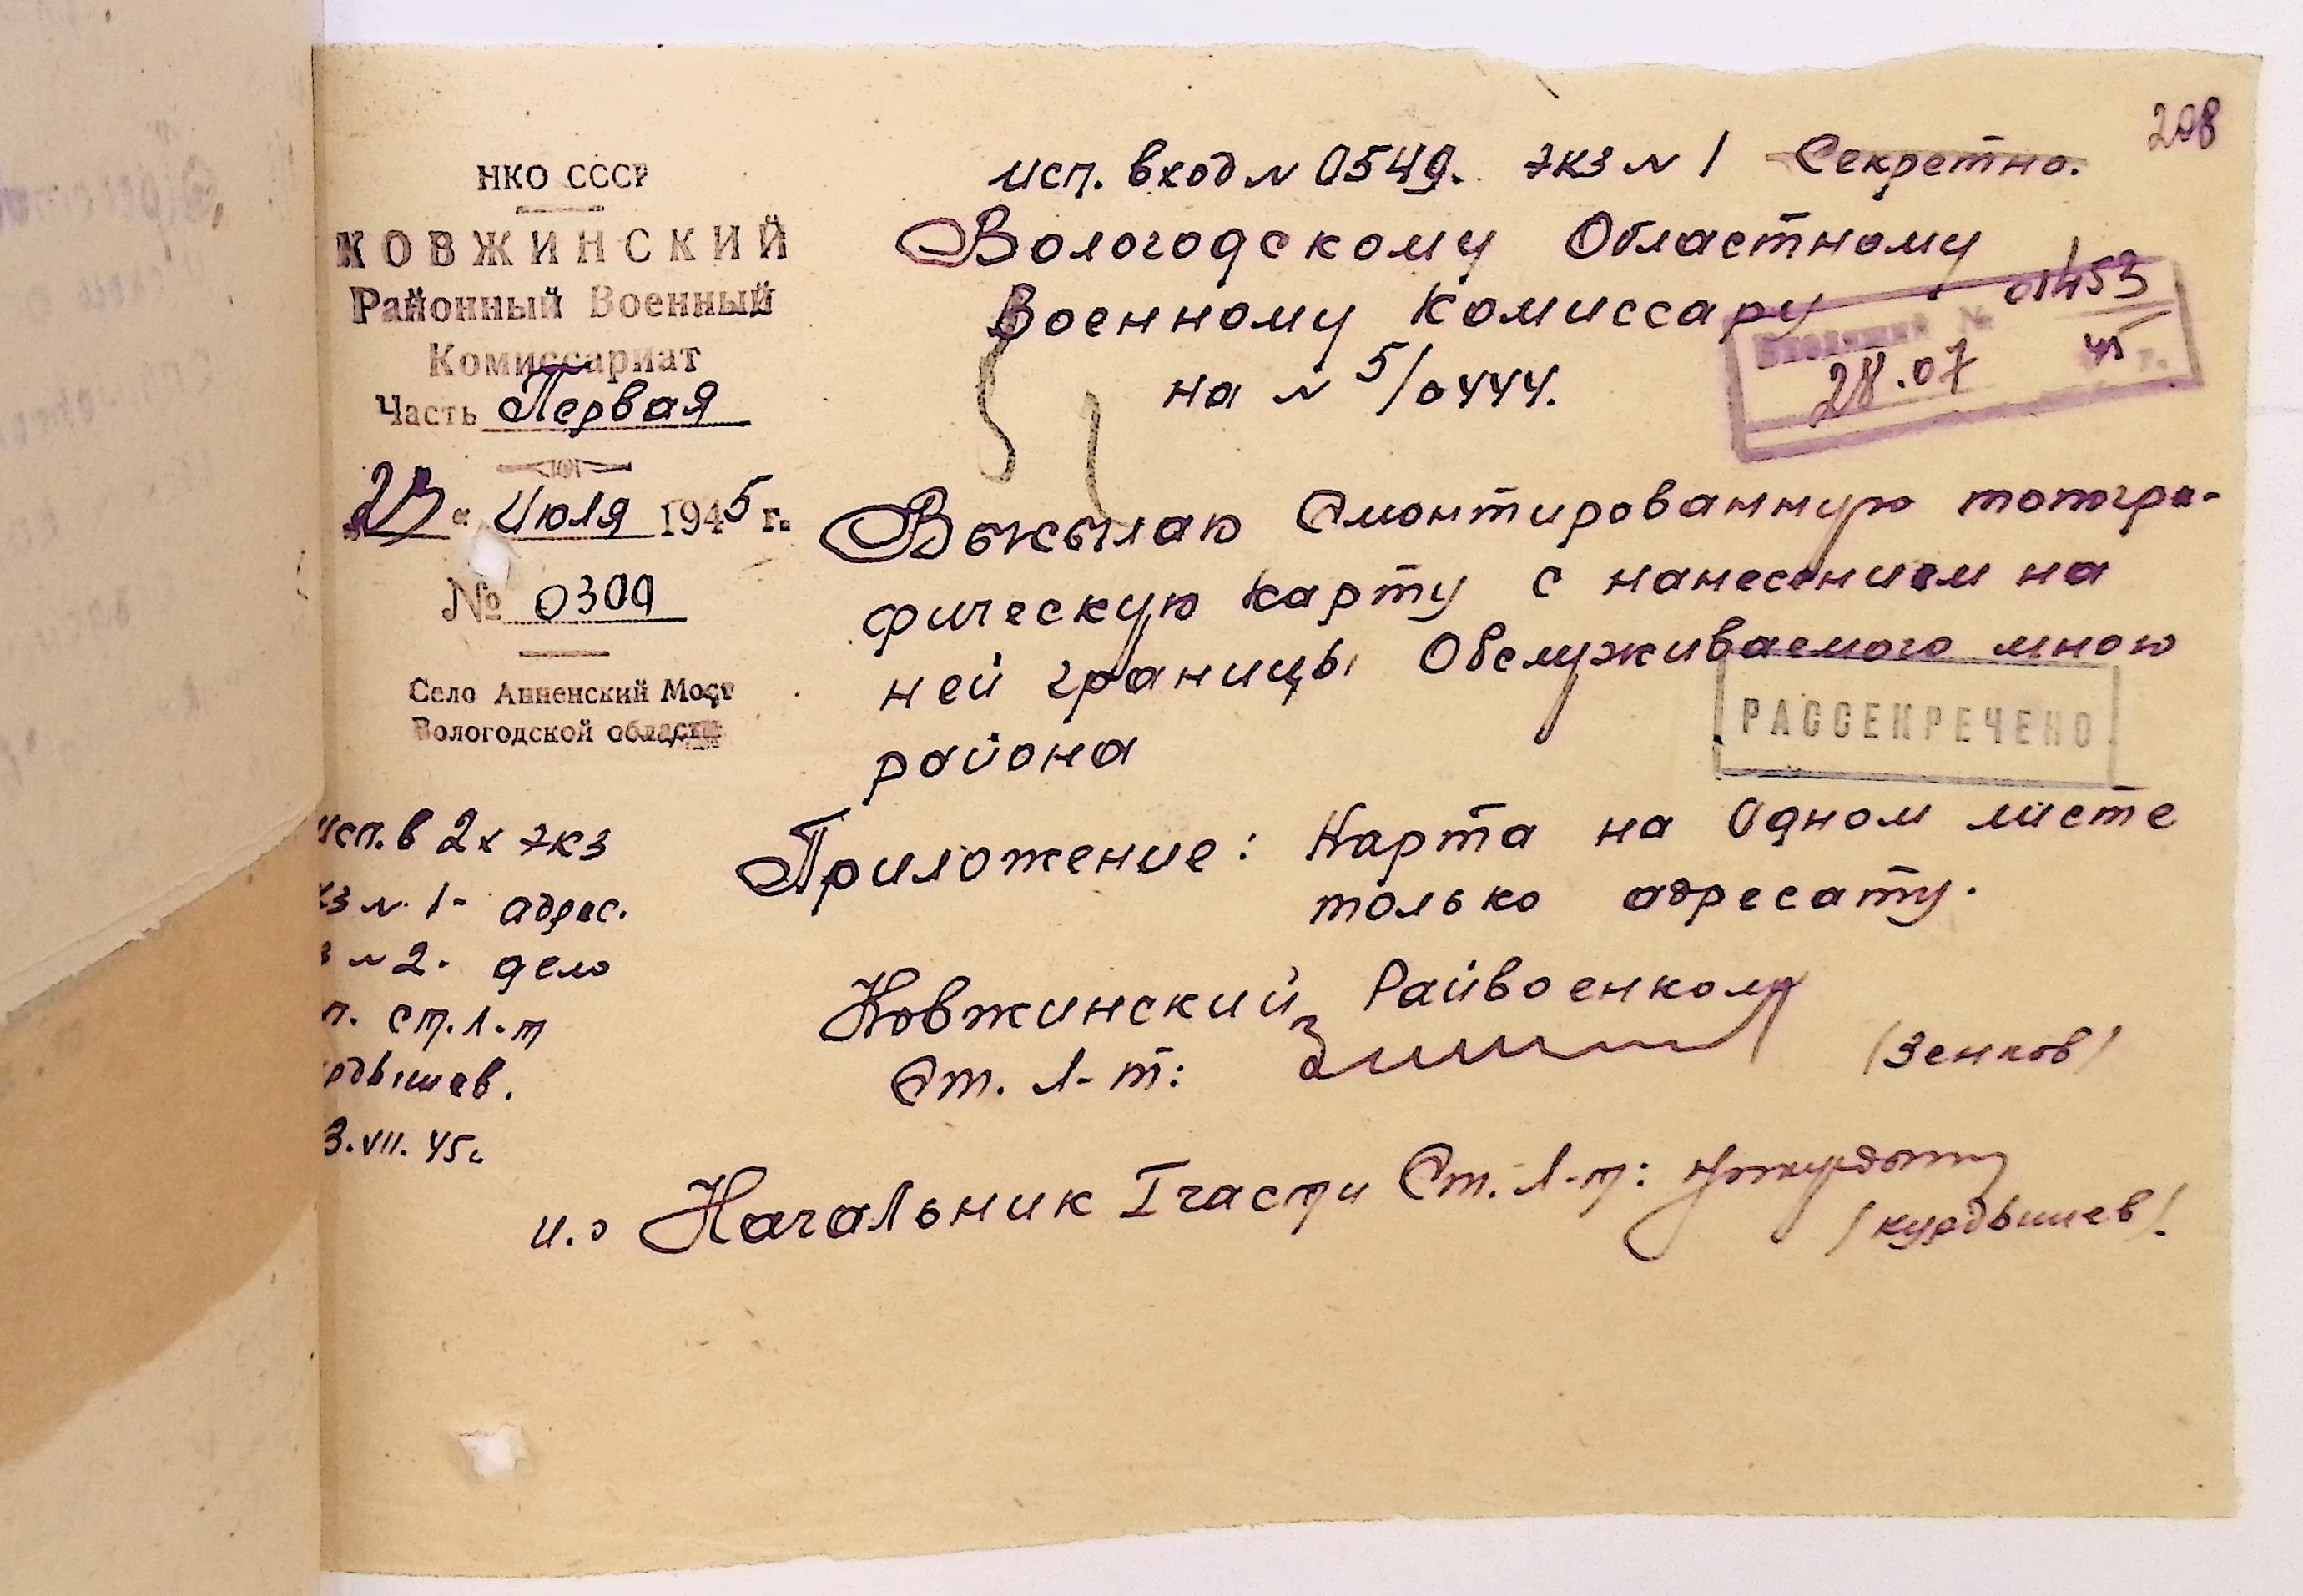 208
НКО СССР
КОВЖИНСКИЙ
Районный Военный
Комиссариат
Часть Первая
"23" Июля 1945 г.
№ 0300
Село Анненский Мост
Вологодской области
исп. в 2х экз
кз № 1- адрес.
з №2- дело
п. ст. л-т
рдышев.
3.VII.45г
исп. вход № 0549. экз № 1 Секретно.
Вологодскому Областному
Военному Комиссару
на № 5/0444.
Входящий № 01453
28.07 45 г.
Высылаю Смонтированную топогра-
фическую карту с нанесением на
ней границы Обслуживаемого мною
района
РАССЕКРЕЧЕНО
Приложение: Карта на Одном листе
только адресату.
Ковжинский Райвоенком
Ст. Л-т: (Зенков)
и.о Начальник I части Ст. Л-т:
(курдышев).